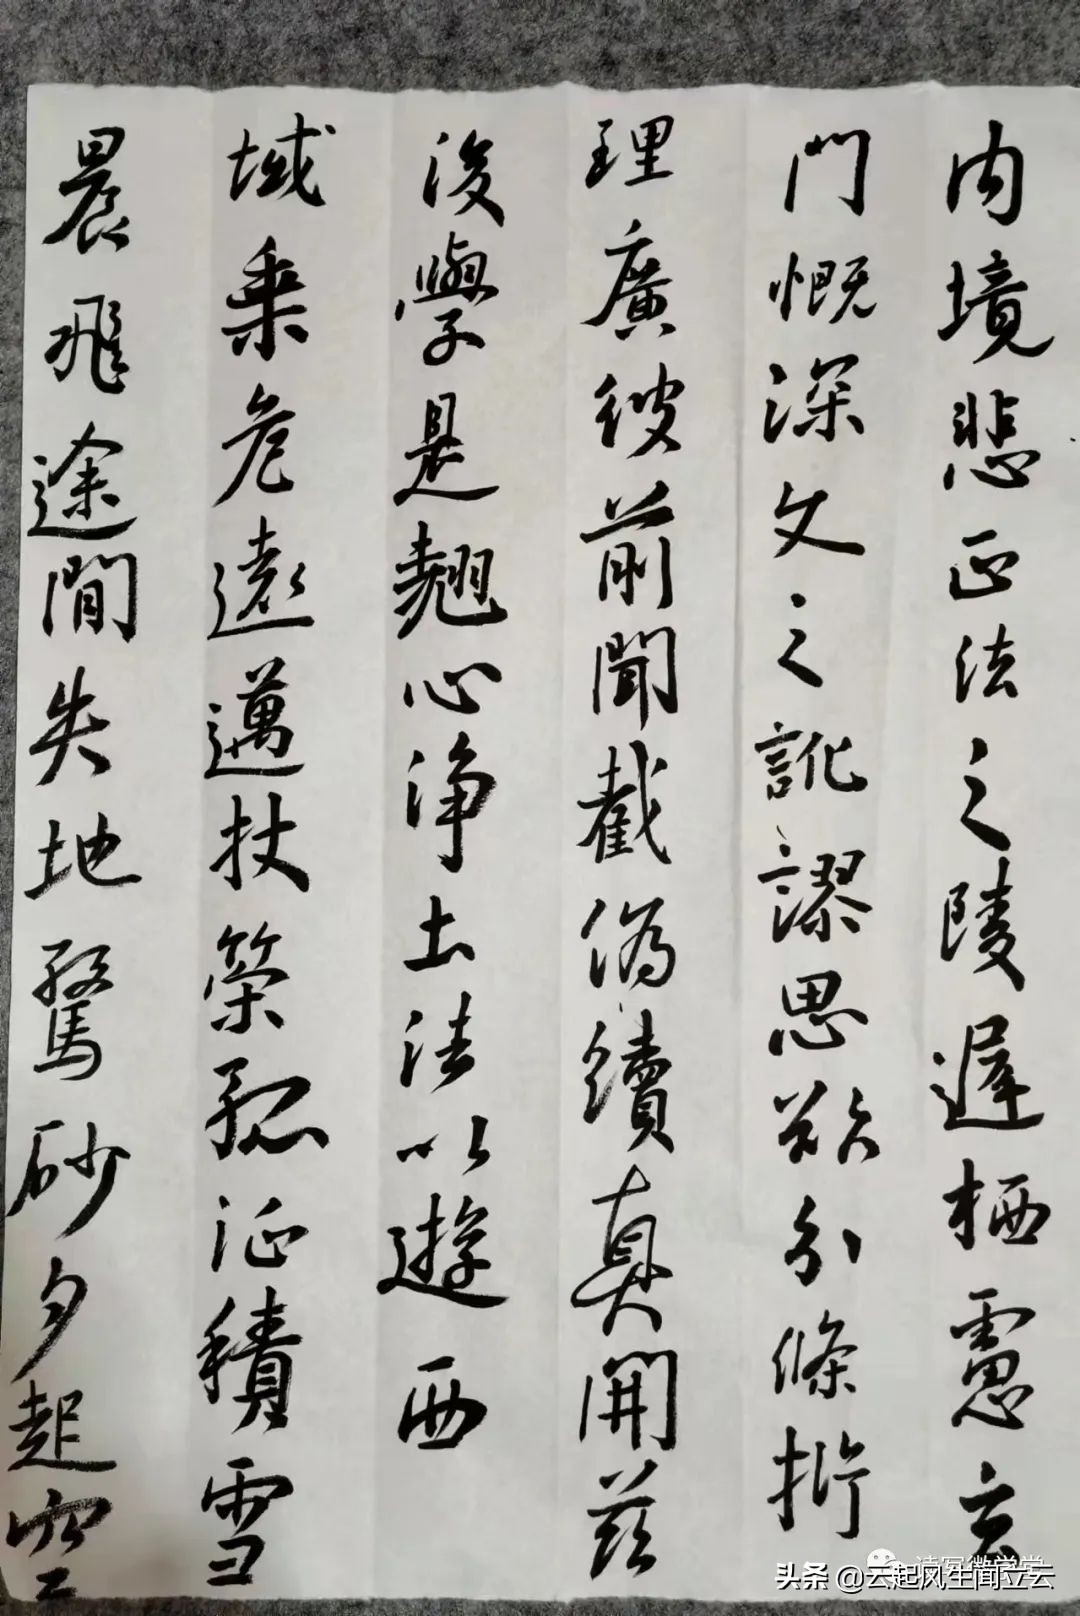 内境悲正法之陵遲栖慮玄
門慨深文之訛謬思欲分條析
理廣彼前聞截偽續真開茲
後學是翹心淨土法以遊西
域乘危遠邁杖策孤征積雪
晨飛途間失地驚砂夕起空
头条 @云起风生闻立云